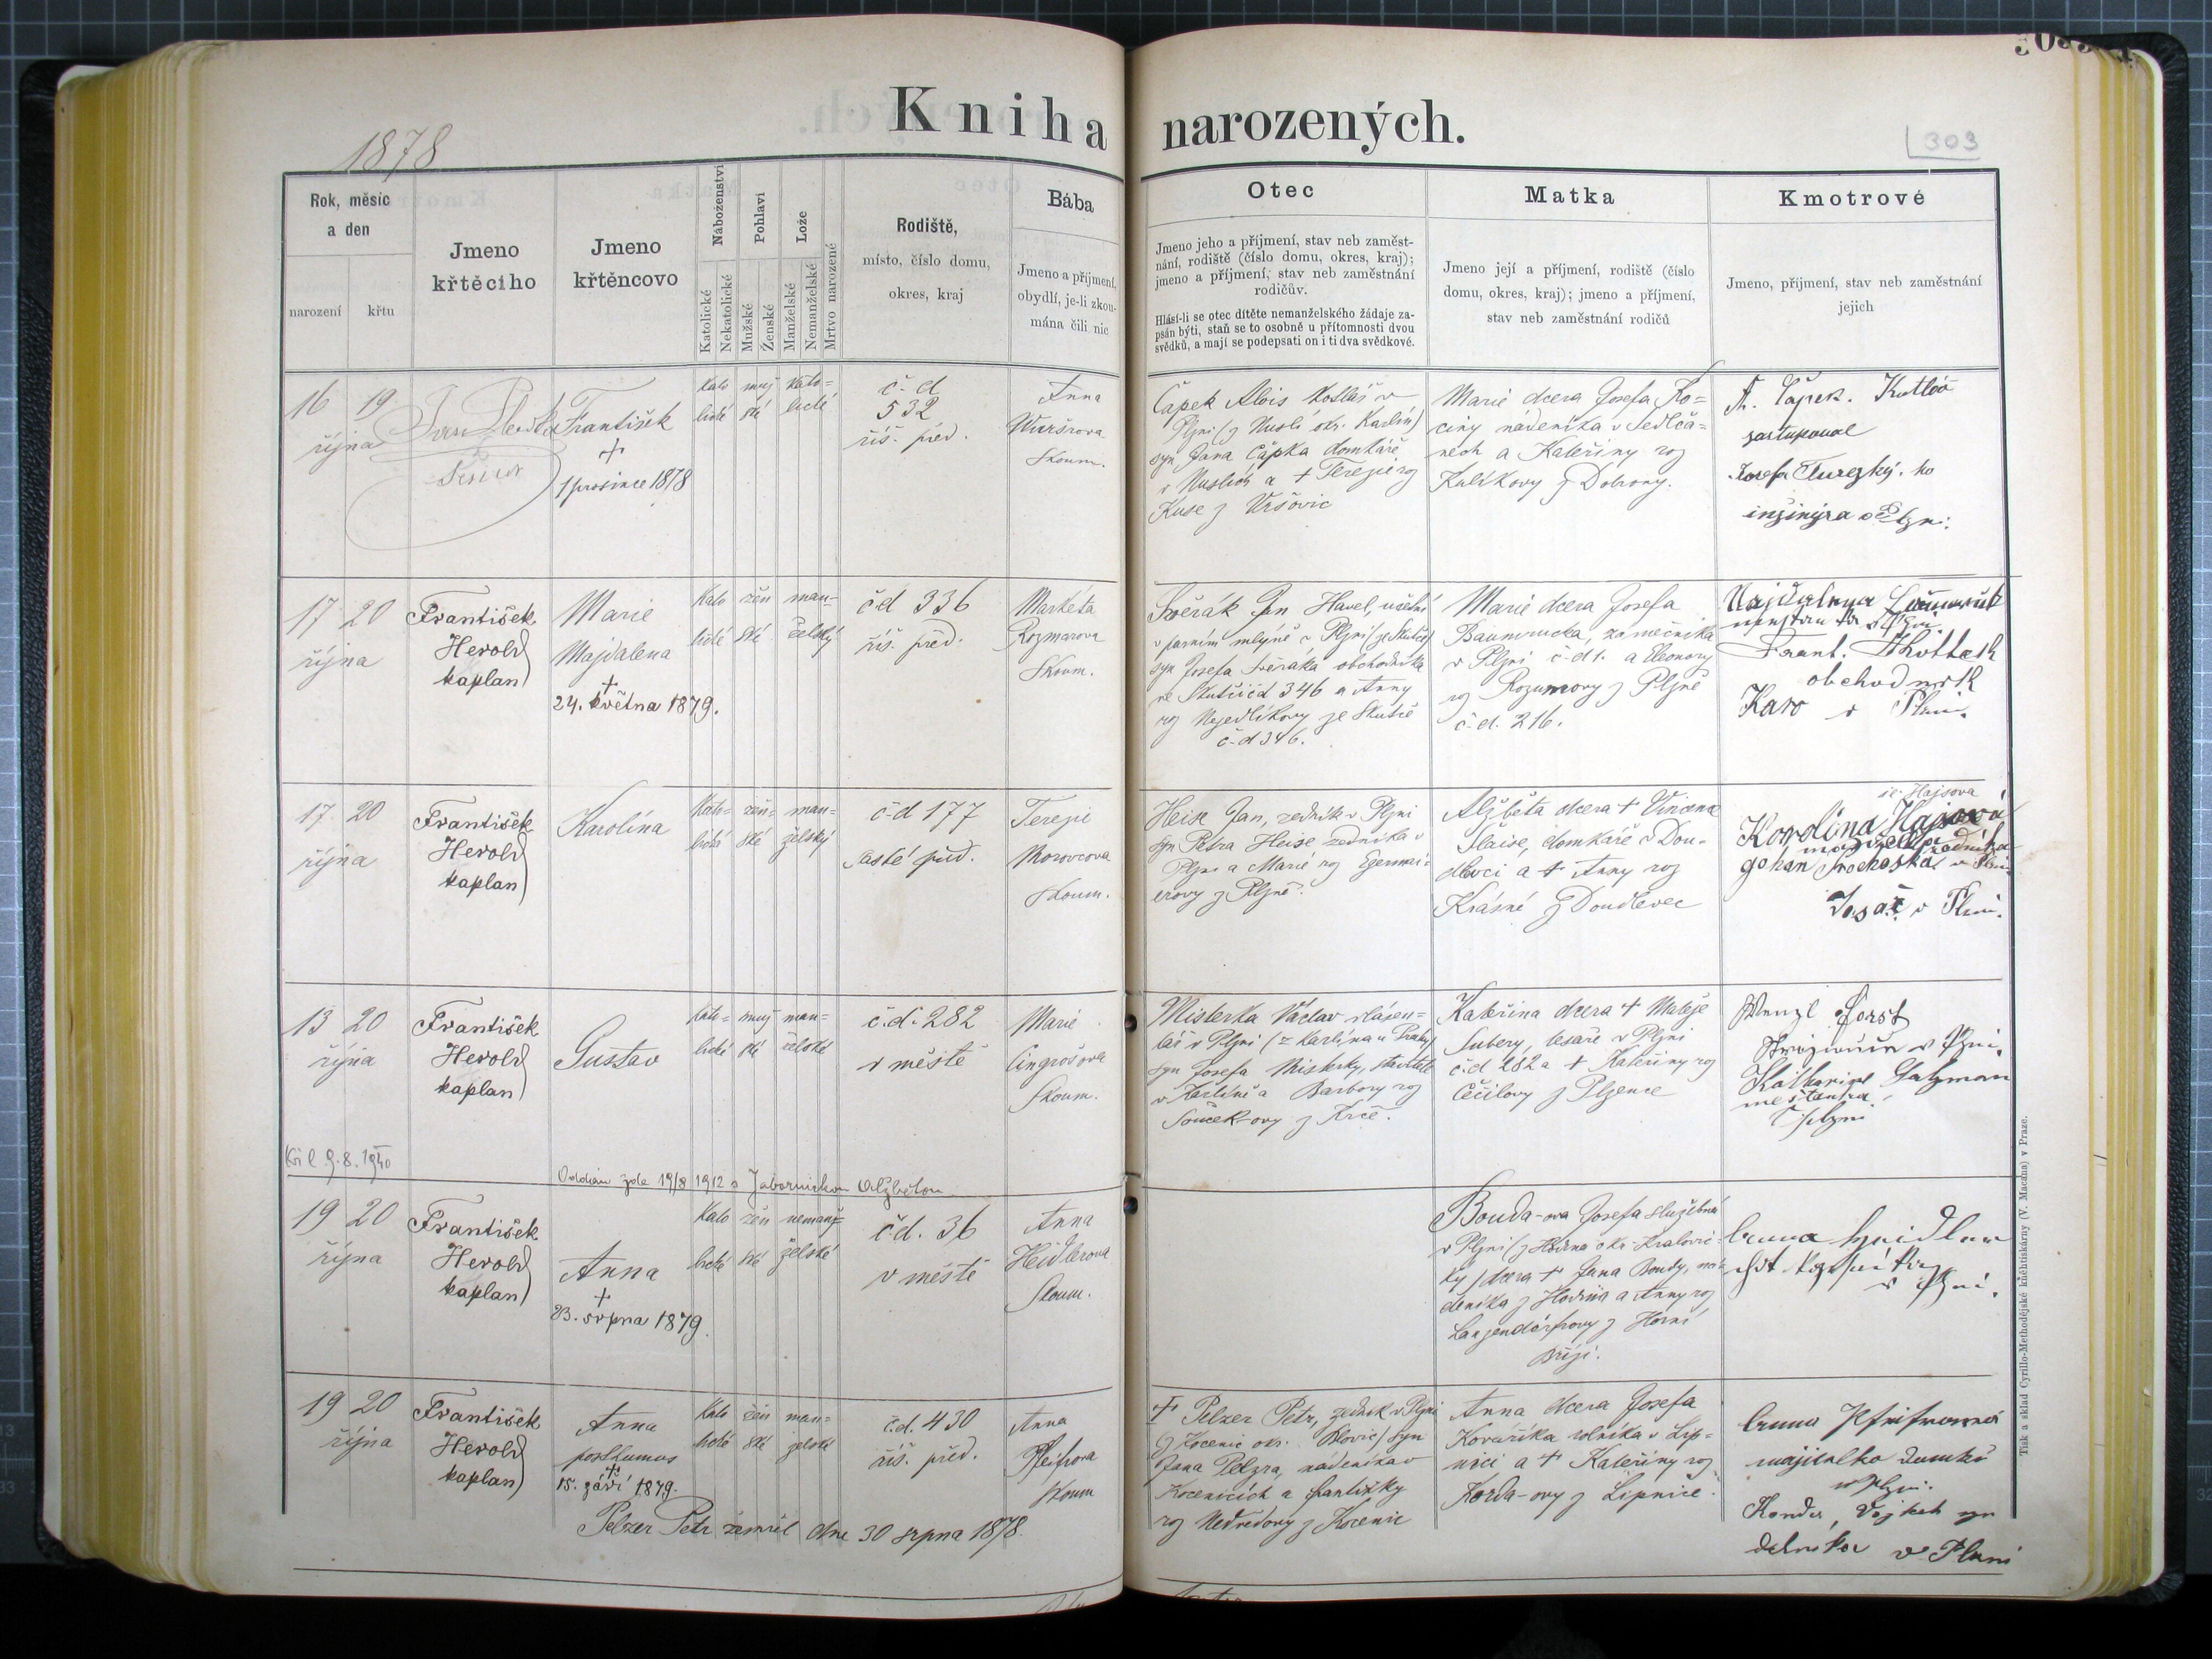 Kniha narozených.
1878
303
Rok, měsíc
a den
narození
křtu
Jmeno
křtěcího
Jmeno
křtěncovo
Náboženství
Katolické
Nekatolické
Pohlaví
Mužské
Ženské
Lože
Manželské
Nemanželské
Mrtvo narozené
Rodiště,
místo, číslo domu,
okres, kraj
Bába
Jmeno a příjmení,
obydlí, je-li zkou-
mána čili nic
Otec
Jmeno jeho a příjmení, stav neb zaměst-
nání, rodiště (číslo domu, okres, kraj);
jmeno a příjmení, stav neb zaměstnání
rodičův.
Hlásí-li se otec dítěte nemanželského žádaje za-
psán býti, staň se to osobně u přítomnosti dvou
svědků, a mají se podepsati on i ti dva svědkové.
Matka
Jmeno její a příjmení, rodiště (číslo
domu, okres, kraj); jmeno a příjmení,
stav neb zaměstnání rodičů
Kmotrové
Jmeno, příjmení, stav neb zaměstnání
jejich
16 19
října
František
+
1 prosince 1878
kato muž
lické ské
č. d.
532
říš. před.
Anna
Skoum.
Čapek Alois kotlář v
Plzni (z Nuslí okr. Karlín)
syn Jana Čapka domkáře
v Nuslích a + Terezie roz
Kuse z Vršovic
Marie dcera Josefa Ko=
ciny nádeníka v Sedlča=
nech a Kateřiny roz
Kulíkovy z Dobrany.
Fr. Čapek. Kotlář
zastupoval
Josefa Turezký. ho
inžinýra v Plzni.
17 20
října
František
Herold
kaplan
Marie
Majdalena
+
24. května 1879.
kato žen man-
lické ské želský
č.d 336
říš. před.
Markéta
Rozmarova
Skoum.
Svěrak Jan Havel, účetní
v parním mlýně v Plzni (ze Skutče)
syn Josefa Svěráka obchodníka
ve Skutči č.d 346 a Anny
roz Nejedlíkovy ze Skutče
č-d 346.
Marie dcera Josefa
Baumrucka, zámečníka
v Plzni č.d 1. a Eleonory
roz Rozumovy z Plzně
č.d. 216.
Frant.
obchodník
v Plzni.
17. 20
října
František
Herold
kaplan
Karolína
kato= žen= man=
lické ské želský
č.d 177
saské před.
Terezie
Morovcova
Skoum.
Heise Jan, zedník v Plzni
syn Petra Heise zedníka v
Plzni a Marie roz Egermai=
erovy z Plzně.
Alžběta dcera + Vincence
Šlaise, domkáře v Dou-
dlevci a + Anny roz
Krásné z Doudlevec
Karolína Hajsová
v Plzni.
13 20
října
František
Herold
kaplan
Gustav
kato= muž man=
lické ské želské
č.d. 282
v městě
Marie
Cingrošova
Skoum.
Misterka Václav vlásen=
kář v Plzni (z Karlína u Prahy)
syn Josefa Misterky, stavitele
v Karlíně a Barbory roz
Součkovy z Krče.
Kateřina dcera + Matěje
Subery, tesaře v Plzni
č.d 282 a + Kateřiny roz
Cečilovy z Plzence
Wenzl Forst
v Plzni.
Katharine Salzman
měšťanka
v Plzni
9. 8. 1940
Oddán zde 19/8 1912 s Javornickou Alžbětou
19 20
října
František
Herold
kaplan
Anna
+
23. srpna 1879.
kato žen nemanž=
lické ské želské
č.d. 36
v městě
Anna
Heidlerova
Skoum.
Bouda-ova Josefa služebná
v Plzni (z Hodína okr. Kralovic=
ky) dcera + Jana Boudy, ná=
deníka z Hodína a Anny roz
Langendörfrovy z Horní
Břízi.
v Plzni.
19 20
října
František
Herold
kaplan
Anna
posthumus
+
15. září 1879.
kato žen man=
lické ské želské
č.d. 430
říš. před.
Anna
Pfeifrova
skoum
+ Pelzer Petr, zedník v Plzni
z Kocenic okr. Blovic) syn
Jana Pelzra, nádeníka v
Kocenicích a Františky
roz Nedvědovy z Kocenic
Anna dcera Josefa
Kovaříka rolníka v Lip=
nici a + Kateřiny roz
Korda-ovy z Lipnice.
Anna Pfeifrová
majitelka domku
v Plzni.
v Plzni
Pelzer Petr zemřel dne 30 srpna 1878.
Tisk a sklad Cyrillo-Methodějské knihtiskárny (V. Macána) v Praze.